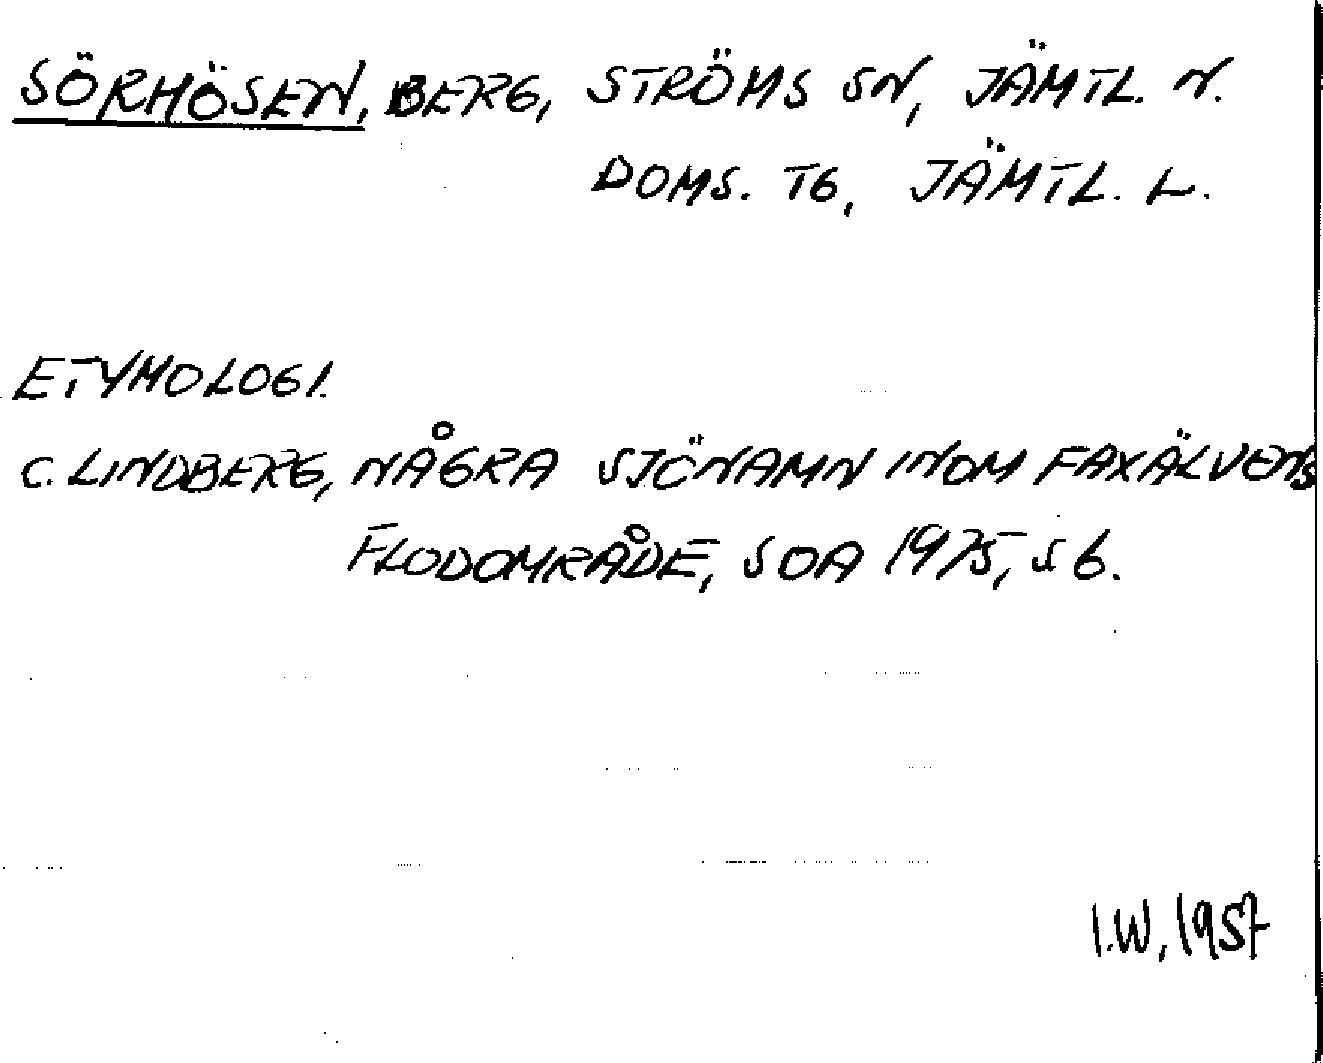 SÖRHÖSEN, BERG, STRÖMS SN, JÄMTL. N.
DOMS. TG, JÄMTL. L.
ETYMOLOGI.
C. LINDBERG, NÅGRA SJÖNAMN INOM FAXÄLVENS
FLODOMRÅDE, SOA 1975, S 6.
I.W, 1957